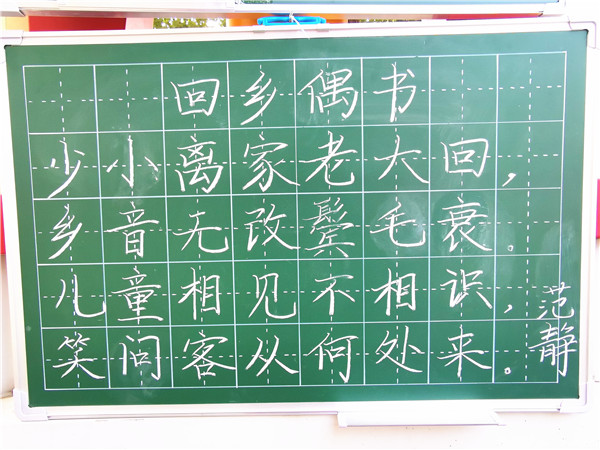 回乡偶书
少小离家老大回，
乡音无改鬓毛衰。
儿童相见不相识，
笑问客从何处来。
范静